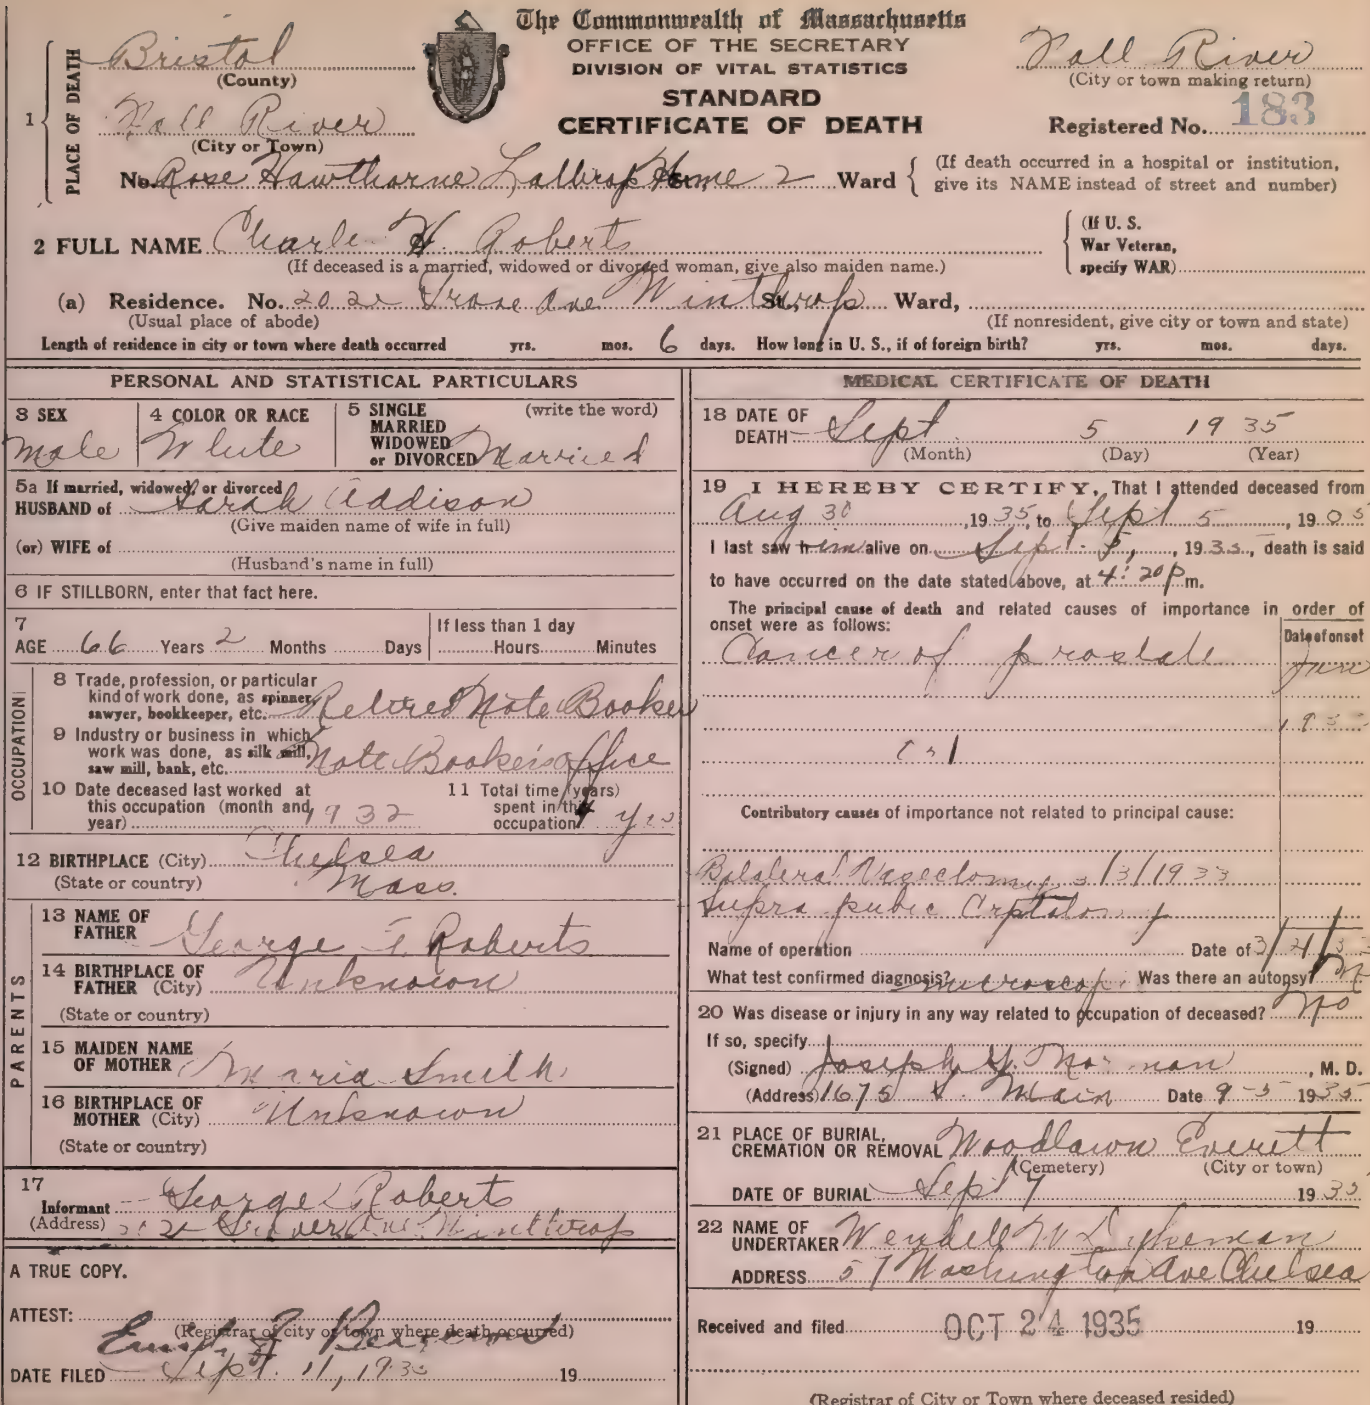 The Commonwealth of Massachusetts
OFFICE OF THE SECRETARY
DIVISION OF VITAL STATISTICS
STANDARD
CERTIFICATE OF DEATH
1 PLACE OF DEATH
Bristol
(County)
Fall River
(City or Town)
Fall River
(City or town making return)
Registered No. 183
No. Rose Hawthorne Lathrop Home 2 Ward { (If death occurred in a hospital or institution, give its NAME instead of street and number)
2 FULL NAME Charles H. Roberts
(If deceased is a married, widowed or divorced woman, give also maiden name.)
(If U. S. War Veteran, specify WAR)
(a) Residence. No. 20 Ave Winthrop St., Ward,
(Usual place of abode) (If nonresident, give city or town and state)
Length of residence in city or town where death occurred yrs. mos. 6 days. How long in U. S., if of foreign birth? yrs. mos. days.
PERSONAL AND STATISTICAL PARTICULARS
3 SEX Male
4 COLOR OR RACE White
5 SINGLE MARRIED WIDOWED or DIVORCED (write the word) Married
5a If married, widowed, or divorced
HUSBAND of Sarah Addison
(Give maiden name of wife in full)
(or) WIFE of
(Husband's name in full)
6 IF STILLBORN, enter that fact here.
7 AGE 66 Years 2 Months Days
If less than 1 day Hours Minutes
OCCUPATION
8 Trade, profession, or particular kind of work done, as spinner, sawyer, bookkeeper, etc. Retired Note Booker
9 Industry or business in which work was done, as silk mill, saw mill, bank, etc. Note Booker's Office
10 Date deceased last worked at this occupation (month and year) 1932
11 Total time (years) spent in this occupation yrs
12 BIRTHPLACE (City) Chelsea
(State or country) Mass.
PARENTS
13 NAME OF FATHER George F. Roberts
14 BIRTHPLACE OF FATHER (City) Unknown
(State or country)
15 MAIDEN NAME OF MOTHER Maria Smith
16 BIRTHPLACE OF MOTHER (City) Unknown
(State or country)
17 Informant George Roberts
(Address) Ave Winthrop
A TRUE COPY.
ATTEST:
(Registrar of city or town where death occurred)
DATE FILED Sept. 11, 1935 19
MEDICAL CERTIFICATE OF DEATH
18 DATE OF DEATH Sept. 5 1935
(Month) (Day) (Year)
19 I HEREBY CERTIFY, That I attended deceased from
Aug 30, 1935, to Sept 5, 1935
I last saw him alive on Sept. 5, 1935, death is said
to have occurred on the date stated above, at 4:20 P m.
The principal cause of death and related causes of importance in order of onset were as follows:
Date of onset
Cancer of prostate June
193
Contributory causes of importance not related to principal cause:
Bilateral Vasectomy 3/3/1933
Supra pubic
Name of operation Date of 3/21/33
What test confirmed diagnosis? microscop. Was there an autopsy
20 Was disease or injury in any way related to occupation of deceased? No
If so, specify
(Signed) Joseph Norman, M. D.
(Address) 1675 S. Main Date 9-5 1935
21 PLACE OF BURIAL, CREMATION OR REMOVAL Woodlawn Everett
(Cemetery) (City or town)
DATE OF BURIAL Sept 7 1935
22 NAME OF UNDERTAKER Wendell W Dykeman
ADDRESS 57 Washington Ave Chelsea
Received and filed OCT 24 1935 19
(Registrar of City or Town where deceased resided)